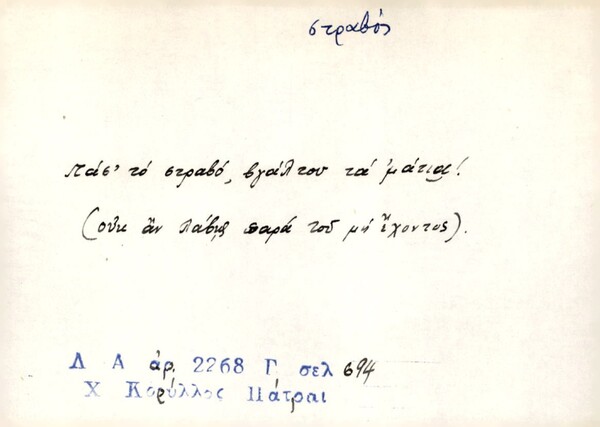 στραβός
Πάσ' τό στραβό, βγάλτου τά 'μάτια!
(οὐκ ἄν λάβῃς παρά τοῦ μή ἔχοντος).
Λ Α ἀρ. 2268 Γ σελ 694
Χ Κορύλλος Πάτραι